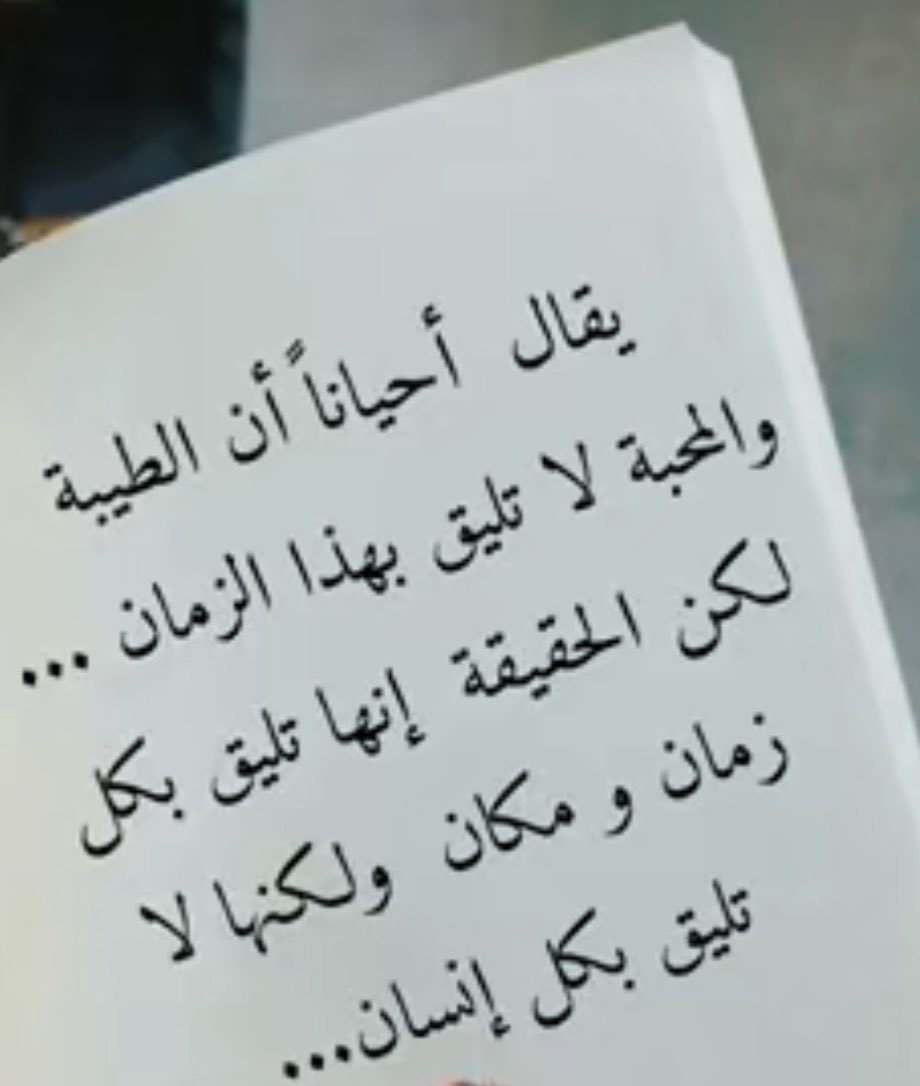 يقال أحياناً أن الطيبة
والمحبة لا تليق بهذا الزمان ...
لكن الحقيقة إنها تليق بكل
زمان و مكان ولكنها لا
تليق بكل إنسان...